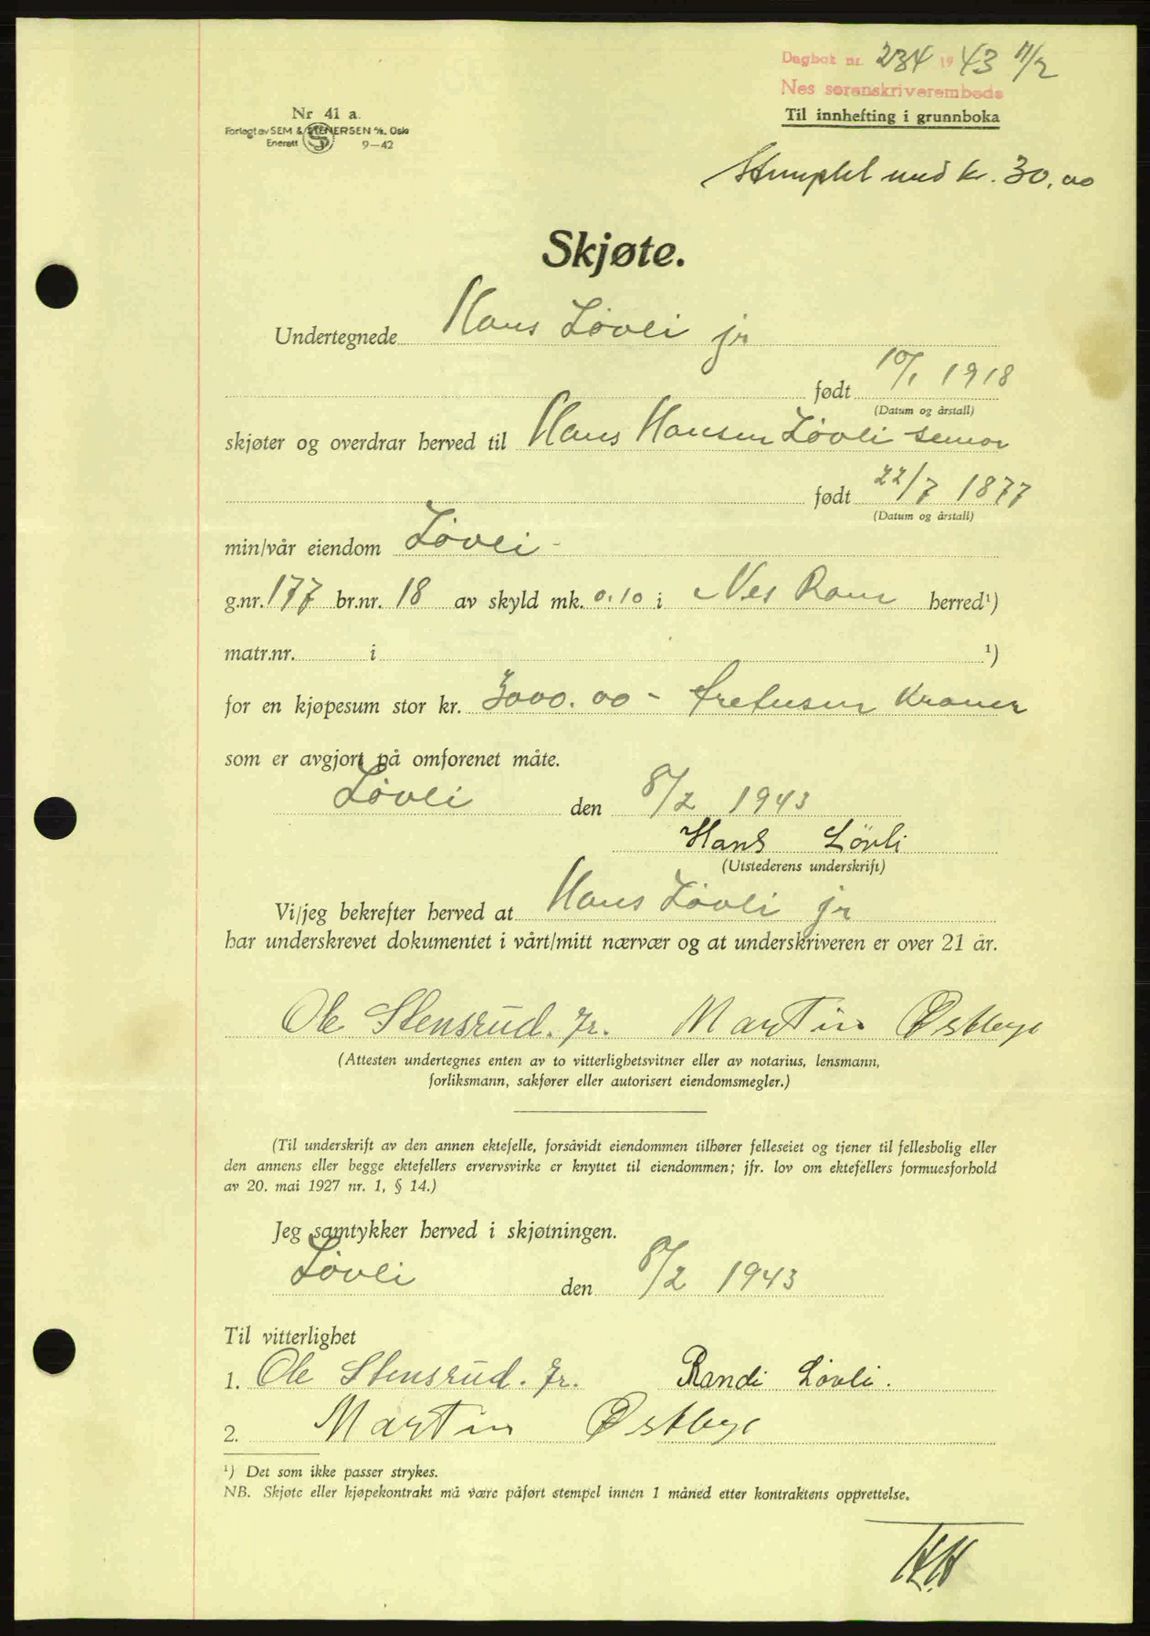 Dagbok nr. 234 1943 11/2
Nes sorenskriverembede
Til innhefting i grunnboka
Nr 41 a.
Forlagt av SEM & STENERSEN A/S, Oslo
Enerett 9-42
Stemplet med kr. 30,00
Skjøte.
Undertegnede Hans Løvli jr
født 10/1 1918
(Datum og årstall)
skjøter og overdrar herved til Hans Hansen Løvli senior
født 22/7 1877
(Datum og årstall)
min/vår eiendom Løvli -
g.nr. 177 br.nr. 18 av skyld mk. 0.10 i Nes Rom herred¹)
matr.nr. i ¹)
for en kjøpesum stor kr. 3000.00 - tretusen kroner
som er avgjort på omforenet måte.
Løvli den 8/2 1943
Hans Lövli
(Utstederens underskrift)
Vi/jeg bekrefter herved at Hans Løvli jr
har underskrevet dokumentet i vårt/mitt nærvær og at underskriveren er over 21 år.
Ole Stensrud. Jr. Martin Østbye
(Attesten undertegnes enten av to vitterlighetsvitner eller av notarius, lensmann,
forliksmann, sakfører eller autorisert eiendomsmegler.)
(Til underskrift av den annen ektefelle, forsåvidt eiendommen tilhører felleseiet og tjener til fellesbolig eller
den annens eller begge ektefellers ervervsvirke er knyttet til eiendommen; jfr. lov om ektefellers formuesforhold
av 20. mai 1927 nr. 1, § 14.)
Jeg samtykker herved i skjøtningen.
Løvli den 8/2 1943
Til vitterlighet
1. Ole Stensrud. Jr. Randi Løvli.
2. Martin Østbye
¹) Det som ikke passer strykes.
NB. Skjøte eller kjøpekontrakt må være påført stempel innen 1 måned etter kontraktens opprettelse.